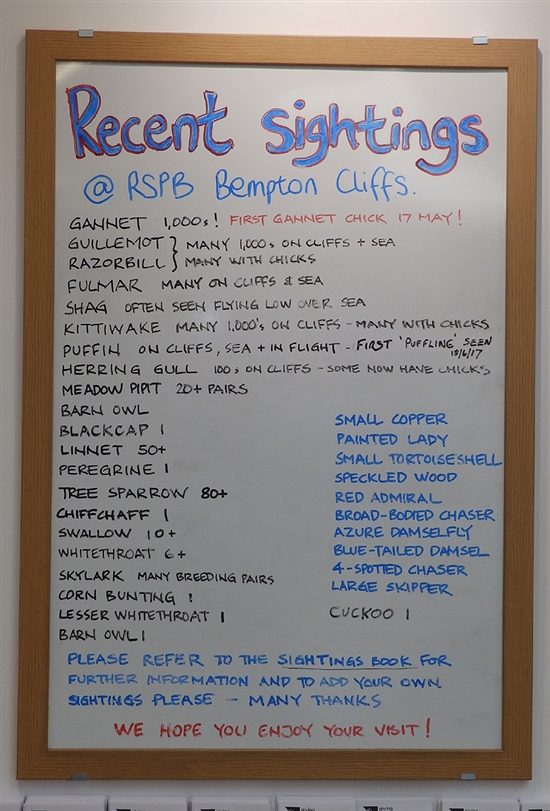 Recent Sightings
@ RSPB Bempton Cliffs.
GANNET 1,000s! FIRST GANNET CHICK 17 MAY!
GUILLEMOT } MANY 1,000s ON CLIFFS + SEA
RAZORBILL } MANY WITH CHICKS
FULMAR MANY ON CLIFFS & SEA
SHAG OFTEN SEEN FLYING LOW OVER SEA
KITTIWAKE MANY 1,000's ON CLIFFS - MANY WITH CHICKS
PUFFIN ON CLIFFS, SEA + IN FLIGHT - FIRST 'PUFFLING' SEEN
18/6/17
HERRING GULL 100s ON CLIFFS - SOME NOW HAVE CHICKS
MEADOW PIPIT 20+ PAIRS
BARN OWL
BLACKCAP 1
LINNET 50+
PEREGRINE 1
TREE SPARROW 80+
CHIFFCHAFF 1
SWALLOW 10+
WHITETHROAT 6+
SKYLARK MANY BREEDING PAIRS
CORN BUNTING !
LESSER WHITETHROAT 1
BARN OWL 1
SMALL COPPER
PAINTED LADY
SMALL TORTOISESHELL
SPECKLED WOOD
RED ADMIRAL
BROAD-BODIED CHASER
AZURE DAMSELFLY
BLUE-TAILED DAMSEL
4-SPOTTED CHASER
LARGE SKIPPER
CUCKOO 1
PLEASE REFER TO THE SIGHTINGS BOOK FOR
FURTHER INFORMATION AND TO ADD YOUR OWN
SIGHTINGS PLEASE - MANY THANKS
WE HOPE YOU ENJOY YOUR VISIT!